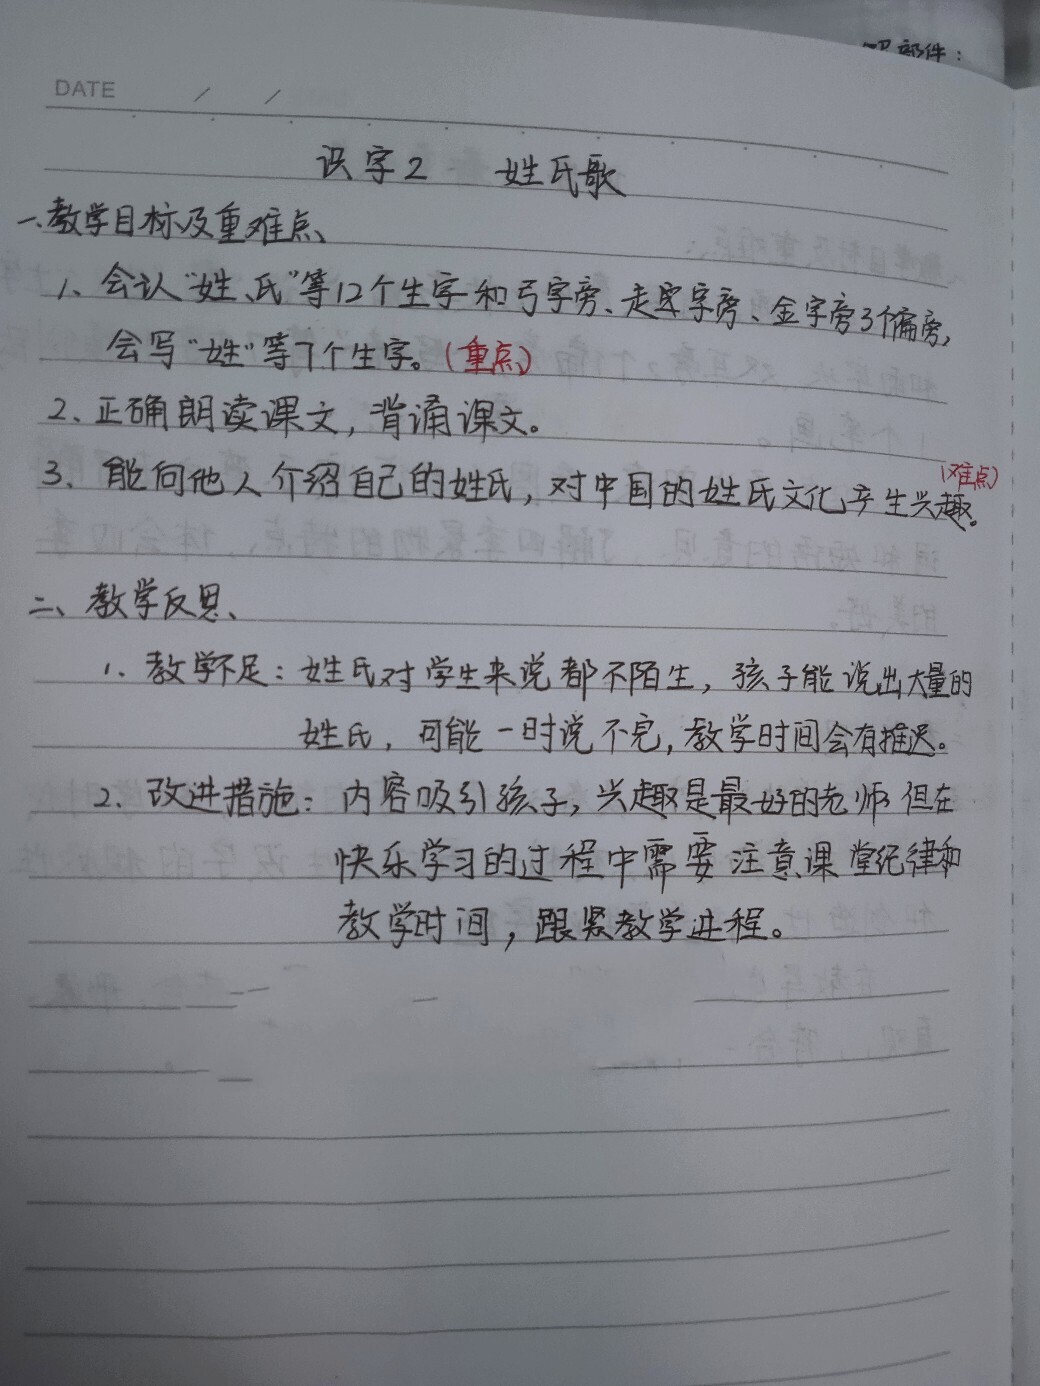 部件：
DATE / /
识字2 姓氏歌
一、教学目标及重难点、
1、会认“姓、氏”等12个生字和弓字旁、走字旁、金字旁3个偏旁，
会写“姓”等7个生字。（重点）
2、正确朗读课文，背诵课文。
3、能向他人介绍自己的姓氏，对中国的姓氏文化产生兴趣。（难点）
二、教学反思、
1、教学不足：姓氏对学生来说都不陌生，孩子能说出大量的
姓氏，可能一时说不完，教学时间会有推迟。
2、改进措施：内容吸引孩子，兴趣是最好的老师，但在
快乐学习的过程中需要注意课堂纪律和
教学时间，跟紧教学进程。